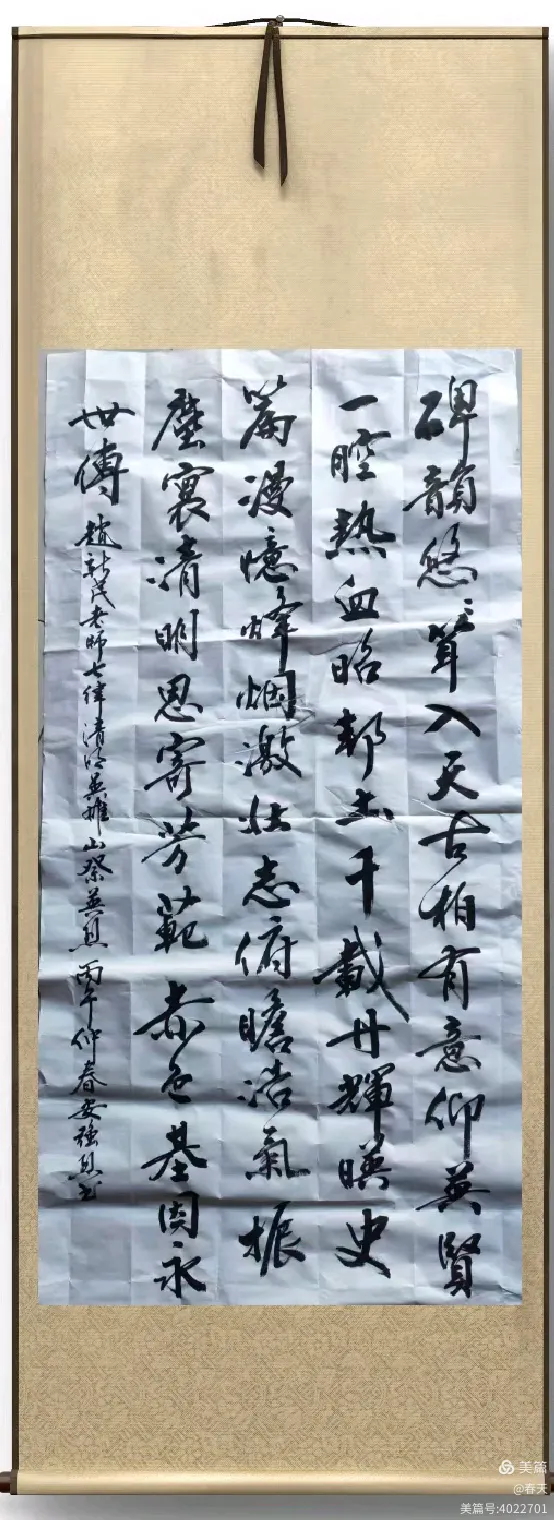 碑韻悠〻耸入天古柏有意仰英賢
一腔熱血昭邦土千載丹輝暎史
篇漫憶烽烟激壮志俯瞻浩氣振
塵寰清明思寄芳範赤色基因永
世傳
趙民老師七律清明英雄山祭英烈丙午仲春安強书
美篇
@春天
美篇号:4022701